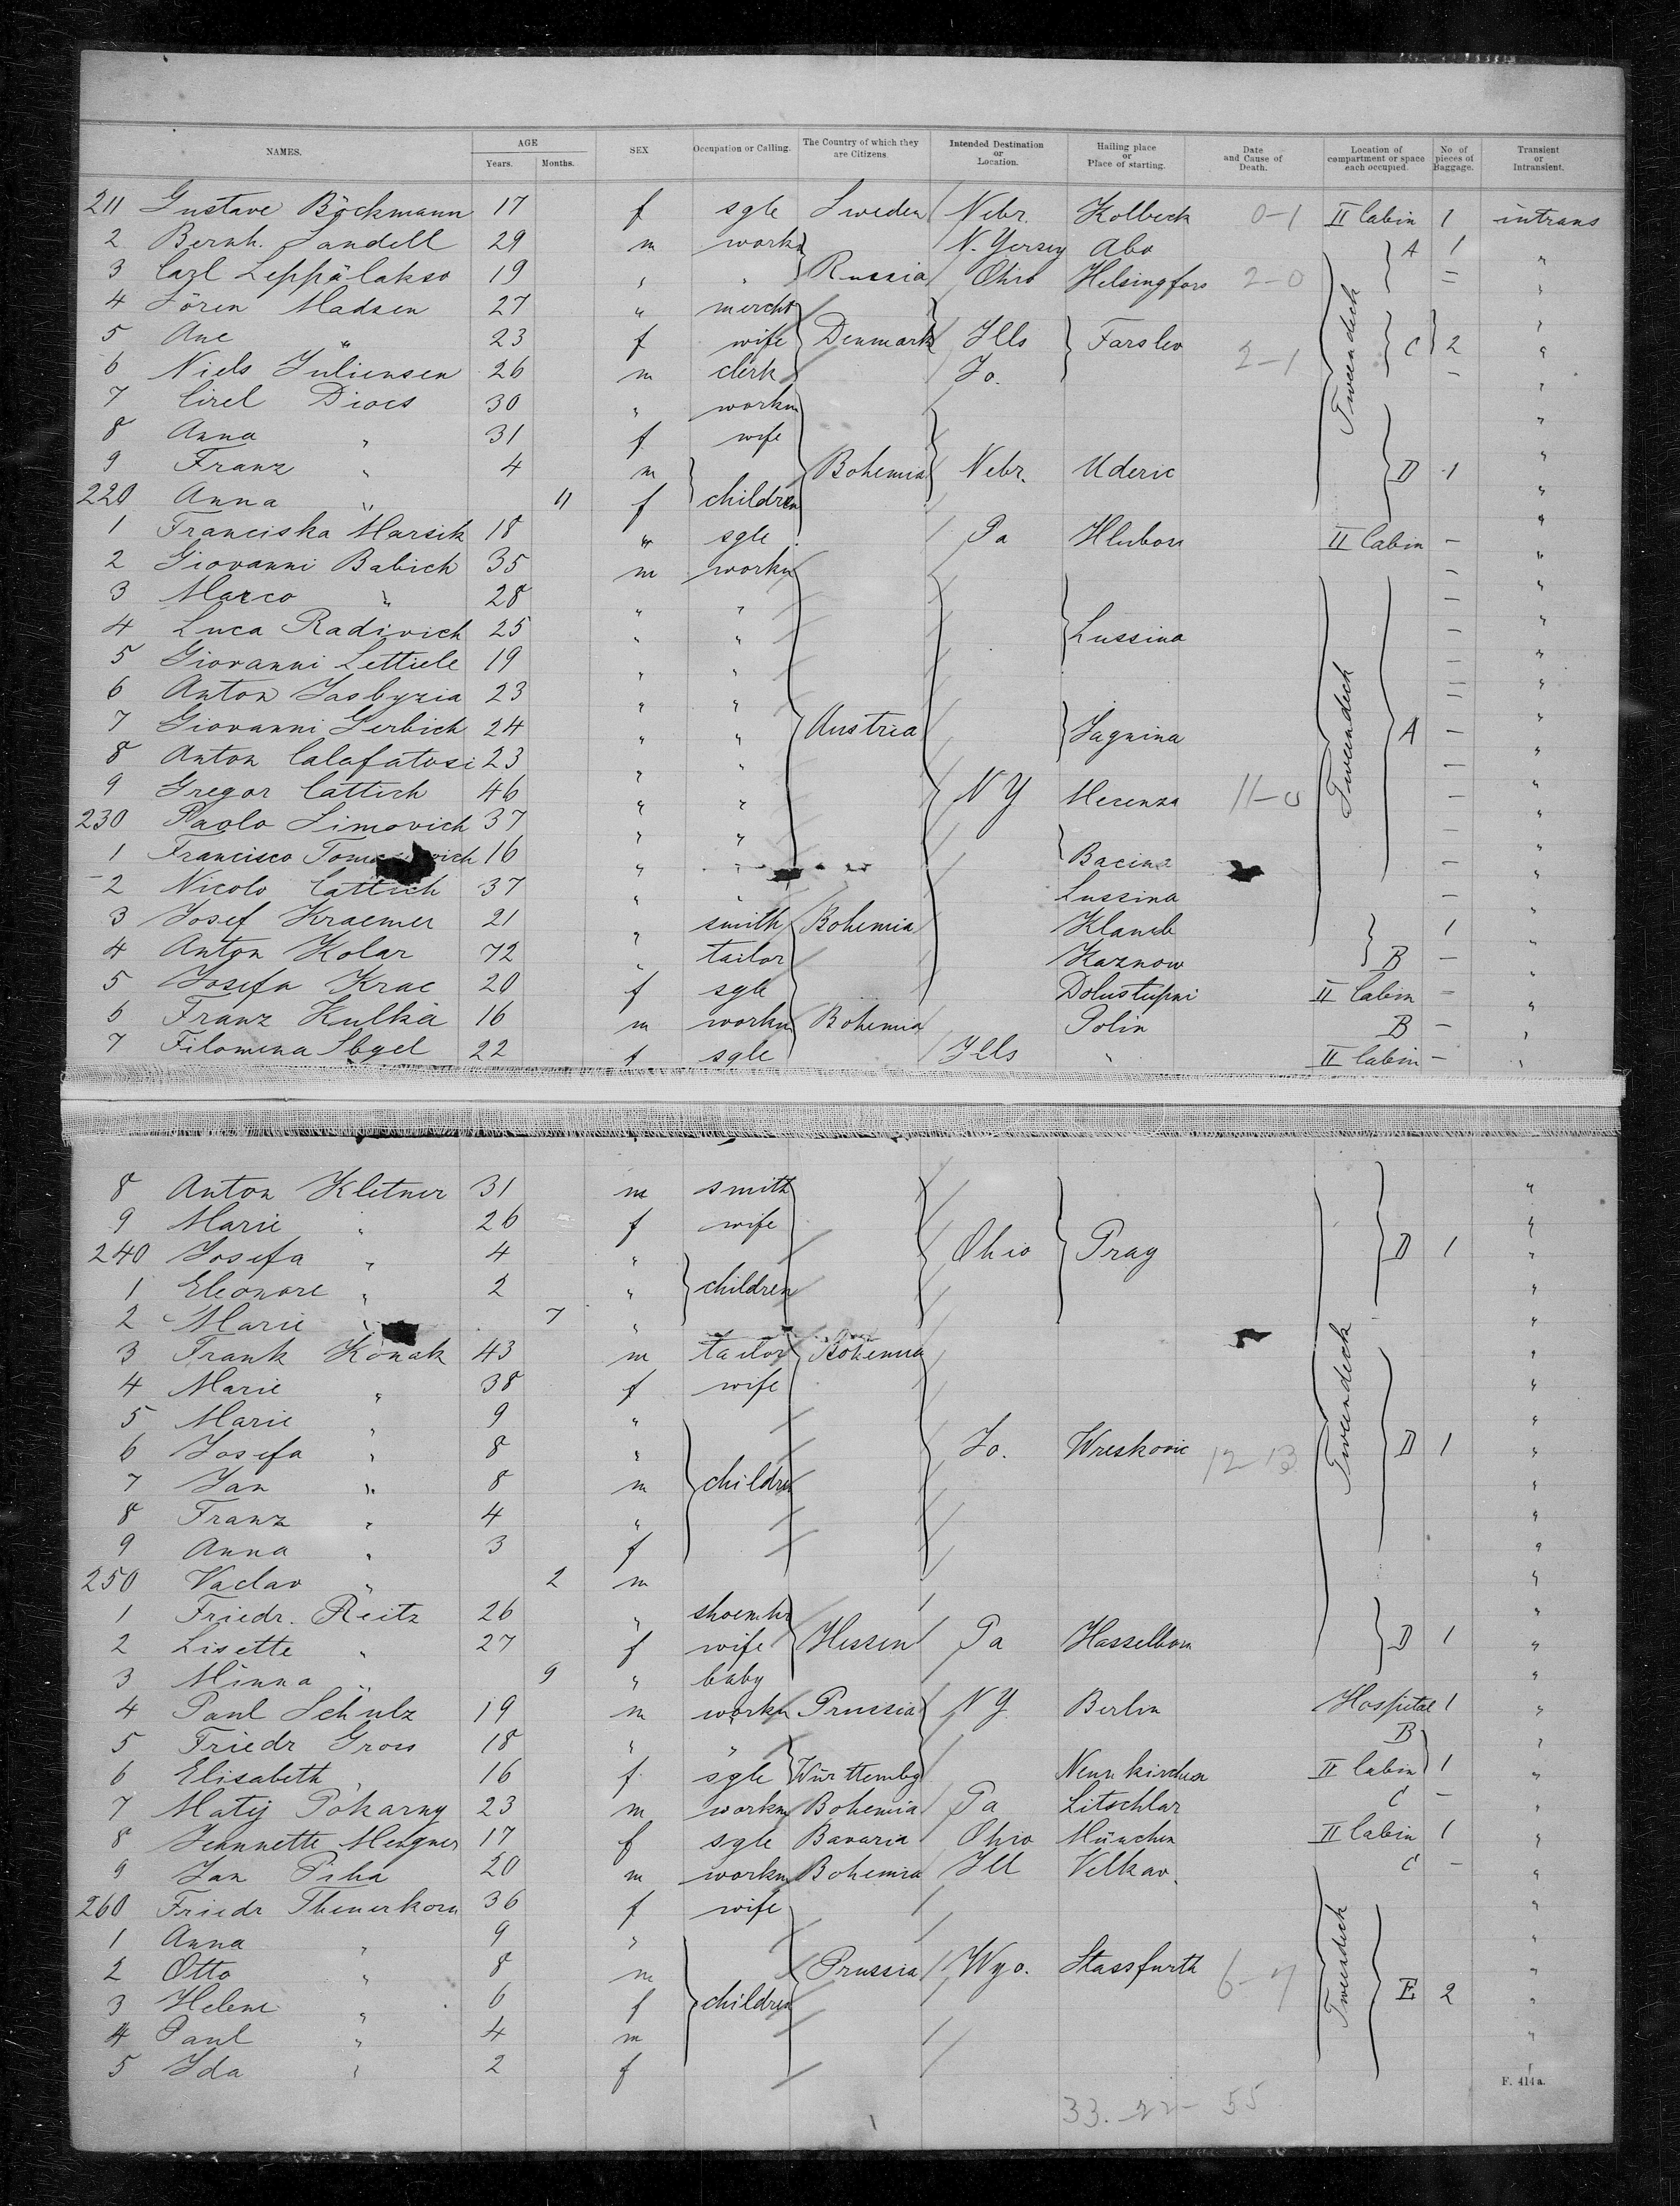 NAMES. AGE Years. Months. SEX Occupation or Calling. The Country of which they are Citizens Intended Destination or Location. Hailing place or Place of starting. Date and Cause of Death. Location of compartment or space each occupied. No. of pieces of Baggage. Transient or Intransient.
211 Gustave Böckmann 17 f sgle Sweden Nebr. Kolbeck 0-1 II Cabin 1 intrans
2 Bernh. Sandell 29 m workm N. Yersey Abo A 1 "
3 Carl Leppälakso 19 " " Russia Ohio Helsingfors 2-0 = "
4 Sören Madsen 27 " mercht "
5 Ane " 23 f wife Denmark Ills Farslev 2-1 Tweendeck C 2 "
6 Niels Juliensen 26 m clerk Jo. - "
7 Cirel Diocs 30 " workm "
8 Anna " 31 f wife "
9 Franz " 4 m Bohemia Nebr. Uderic D 1 "
220 Anna " 11 f children "
1 Franciska Marsik 18 " sgle Pa Hlubou II Cabin - "
2 Giovanni Babich 35 m workm - "
3 Marco " 28 " " - "
4 Luca Radivich 25 " " Lussina - "
5 Giovanni Lettiele 19 " " - "
6 Anton Jasbyzia 23 " " Tweendeck = "
7 Giovanni Gerbich 24 " " Austria Jagnina A - "
8 Anton Calafatosi 23 " " - "
9 Gregor Cattich 46 " " N Y Mecenza 11-0 - "
230 Paolo Simovich 37 " " - "
1 Francisco 16 " " Bacina - "
2 Nicolo Cattich 37 " " Lussina - "
3 Josef Kraemer 21 " smith Bohemia Klamb 1 "
4 Anton Kolar 72 " tailor Kaznow B - "
5 Josefa Krac 20 f sgle Dolustupni II Cabin - "
6 Franz Kulka 16 m workm Bohemia Polin B - "
7 Filomena Sbgel 22 f sgle Ills " II Cabin - "
8 Anton Kletner 31 m smith "
9 Marie " 26 f wife "
240 Josefa " 4 " Ohio Prag D 1 "
1 Eleonore " 2 " children "
2 Marie " 7 " "
3 Frank Konak 43 m tailor Bohemia "
4 Marie " 38 f wife Tweendeck "
5 Marie " 9 " "
6 Josefa " 8 " Jo. Wreskovic 12-13 D 1 "
7 Jan " 8 m children "
8 Franz " 4 " "
9 Anna " 3 f "
250 Vaclav " 2 m "
1 Friedr. Reitz 26 " shoemkr "
2 Lisette " 27 f wife Hessen Pa Hasselborn D 1 "
3 Minna " 9 " baby "
4 Paul Schulz 19 m workm Prussia N Y Berlin Hospital 1 "
5 Friedr Gross 18 " " B "
6 Elisabeth " 16 f sgle Württembg Neunkirchen II Cabin 1 "
7 Matij Pokarny 23 m workm Bohemia Pa Litschlar C - "
8 Jeannette Mengner 17 f sgle Bavaria Ohio München II Cabin 1 "
9 Jan Piha 20 m workm Bohemia Ill Velkav. C - "
260 Friedr Thenerkorn 36 f wife "
1 Anna " 9 " "
2 Otto " 8 m Prussia Wyo. Stassfurth 6-7 Tweendeck "
3 Helene " 6 f children E 2 "
4 Paul " 4 m "
5 Ida " 2 f "
F. 414a.
33. 22- 55